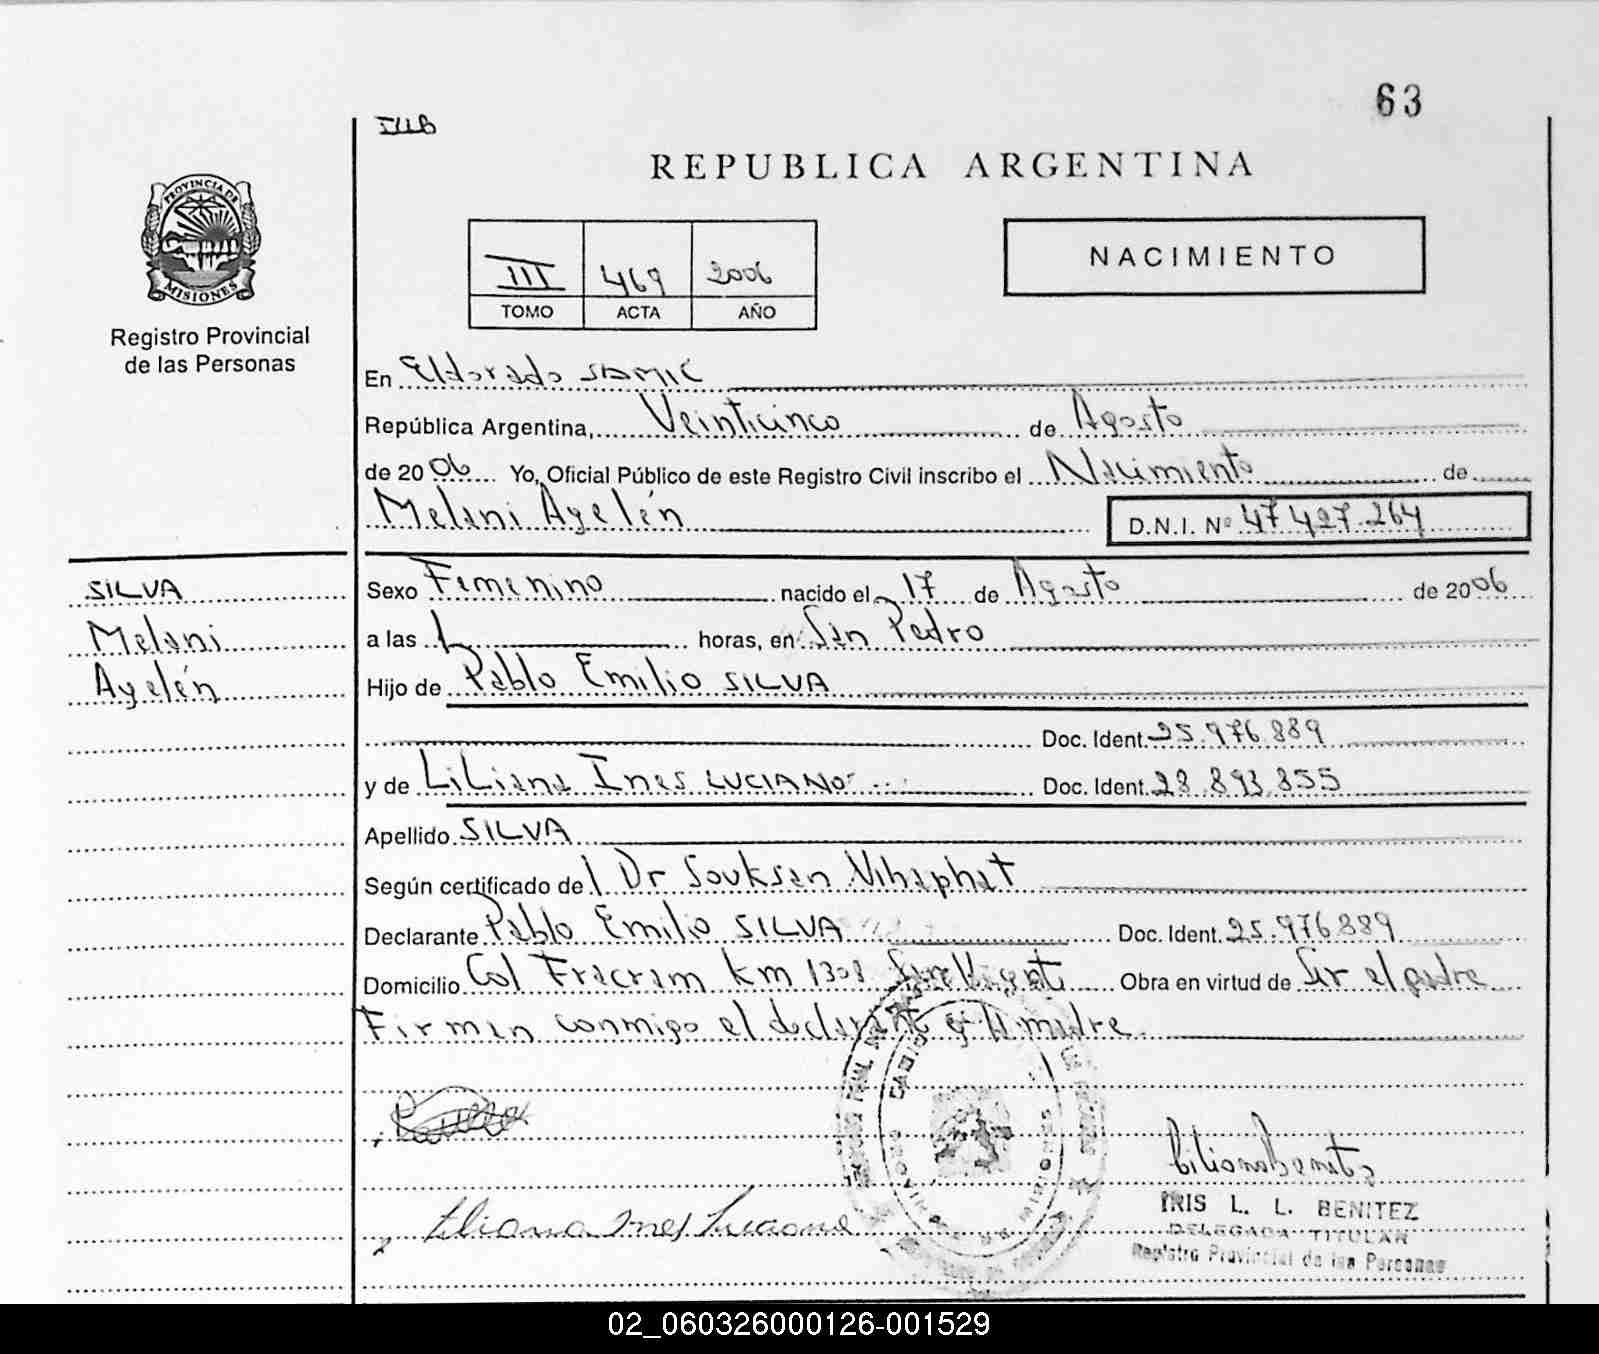 63
REPUBLICA ARGENTINA
PROVINCIA DE
MISIONES
Registro Provincial
de las Personas
III 469 2006
TOMO ACTA AÑO
NACIMIENTO
En Eldorado SAMIC
República Argentina, Veinticinco de Agosto
de 2006 Yo, Oficial Público de este Registro Civil inscribo el Nacimiento de
Melani Ayelén D.N.I. Nº 47.427.264
SILVA
Melani
Ayelén
Sexo Femenino nacido el 17 de Agosto de 2006
a las 1 horas, en San Pedro
Hijo de Pablo Emilio SILVA
Doc. Ident. 25.976.889
y de Liliana Ines LUCIANO Doc. Ident. 28.893.855
Apellido SILVA
Según certificado del Dr Souksan Vihaphat
Declarante Pablo Emilio SILVA Doc. Ident. 25.976.889
Domicilio Col Fracram km 1308 San Vicente Obra en virtud de Ser el padre
Firman conmigo el declarante y la madre
Liliana Ines Luciano
IRIS L. L. BENITEZ
DELEGADA TITULAR
Registro Provincial de las Personas
02_060326000126-001529